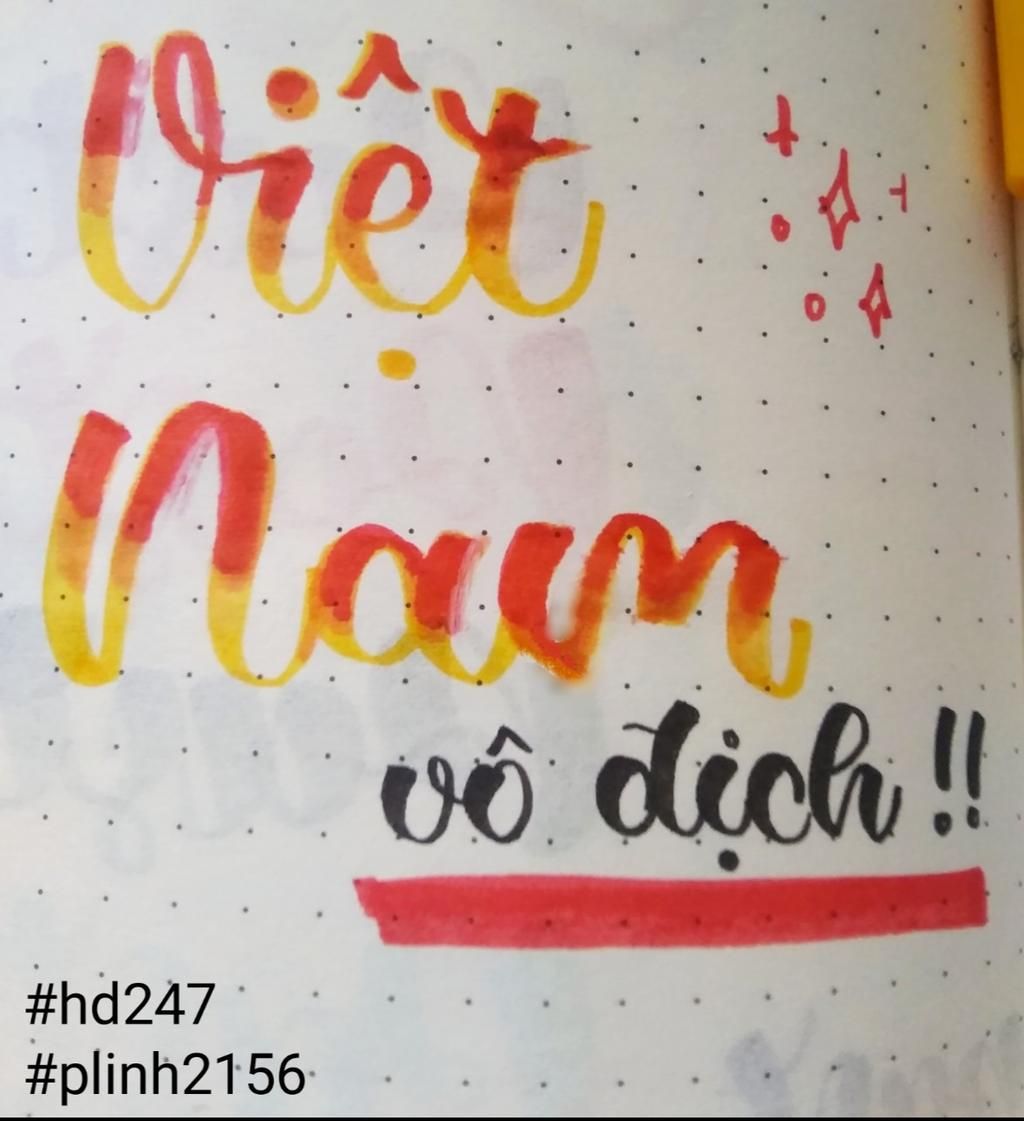 Việt
Nam
vô địch !!
#hd247
#plinh2156